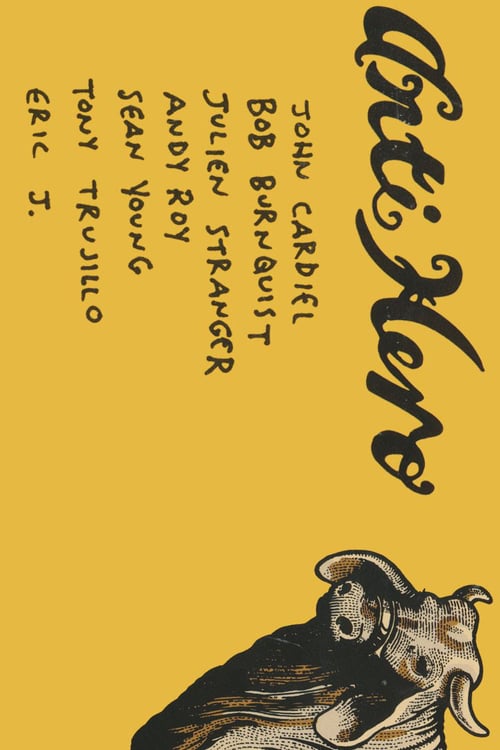 Anti Hero
JOHN CARDIEL
BOB BURNQUIST
JULIEN STRANGER
ANDY ROY
SEAN YOUNG
TONY TRUJILLO
ERIC J.